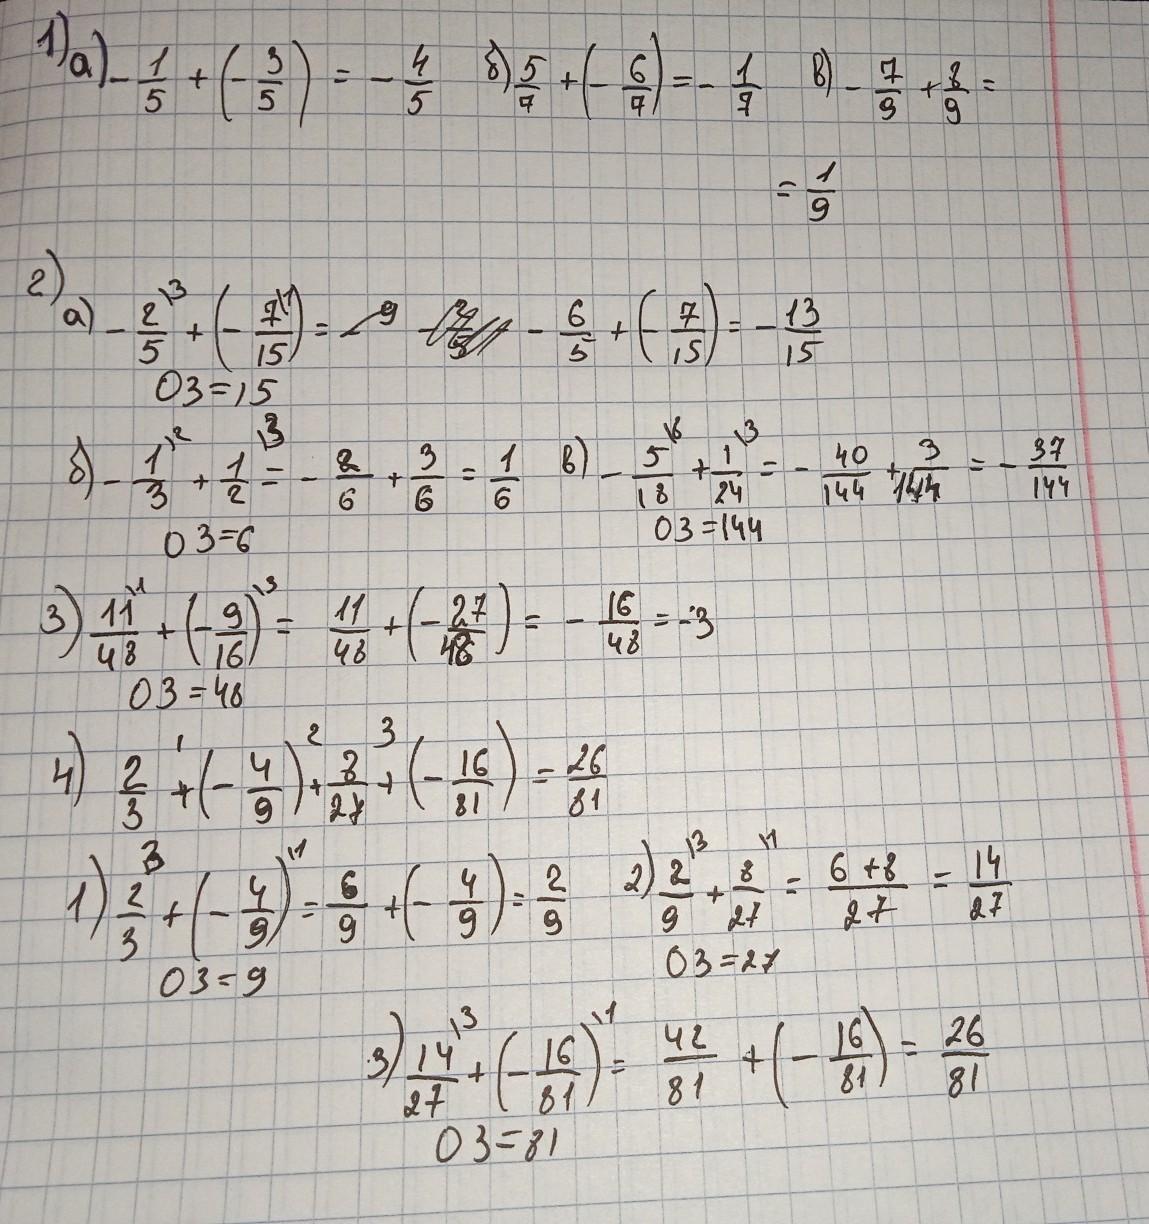 1) а) -1/5 + (-3/5) = -4/5 б) 5/7 + (-6/7) = -1/7 в) -7/9 + 8/9 =
= 1/9
2)
а) -2/5 \3 + (-7/15 \1) = -6/5 + (-7/15) = -13/15
ОЗ=15
б) -1/3 \2 + 1/2 \3 = -2/6 + 3/6 = 1/6 в) -5/18 \8 + 1/24 \3 = -40/144 + 3/144 = -37/144
ОЗ=6 ОЗ=144
3) 11/48 \1 + (-9/16) \3 = 11/48 + (-27/48) = -16/48 = -3
ОЗ=48
4) 2/3 + 1 (-4/9) + 2 8/27 + 3 (-16/81) = 26/81
1) 2/3 3 + (-4/9) \1 = 6/9 + (-4/9) = 2/9 2) 2/9 \3 + 8/27 \1 = 6+8/27 = 14/27
ОЗ=9 ОЗ=27
3) 14/27 \3 + (-16/81) \1 = 42/81 + (-16/81) = 26/81
ОЗ=81